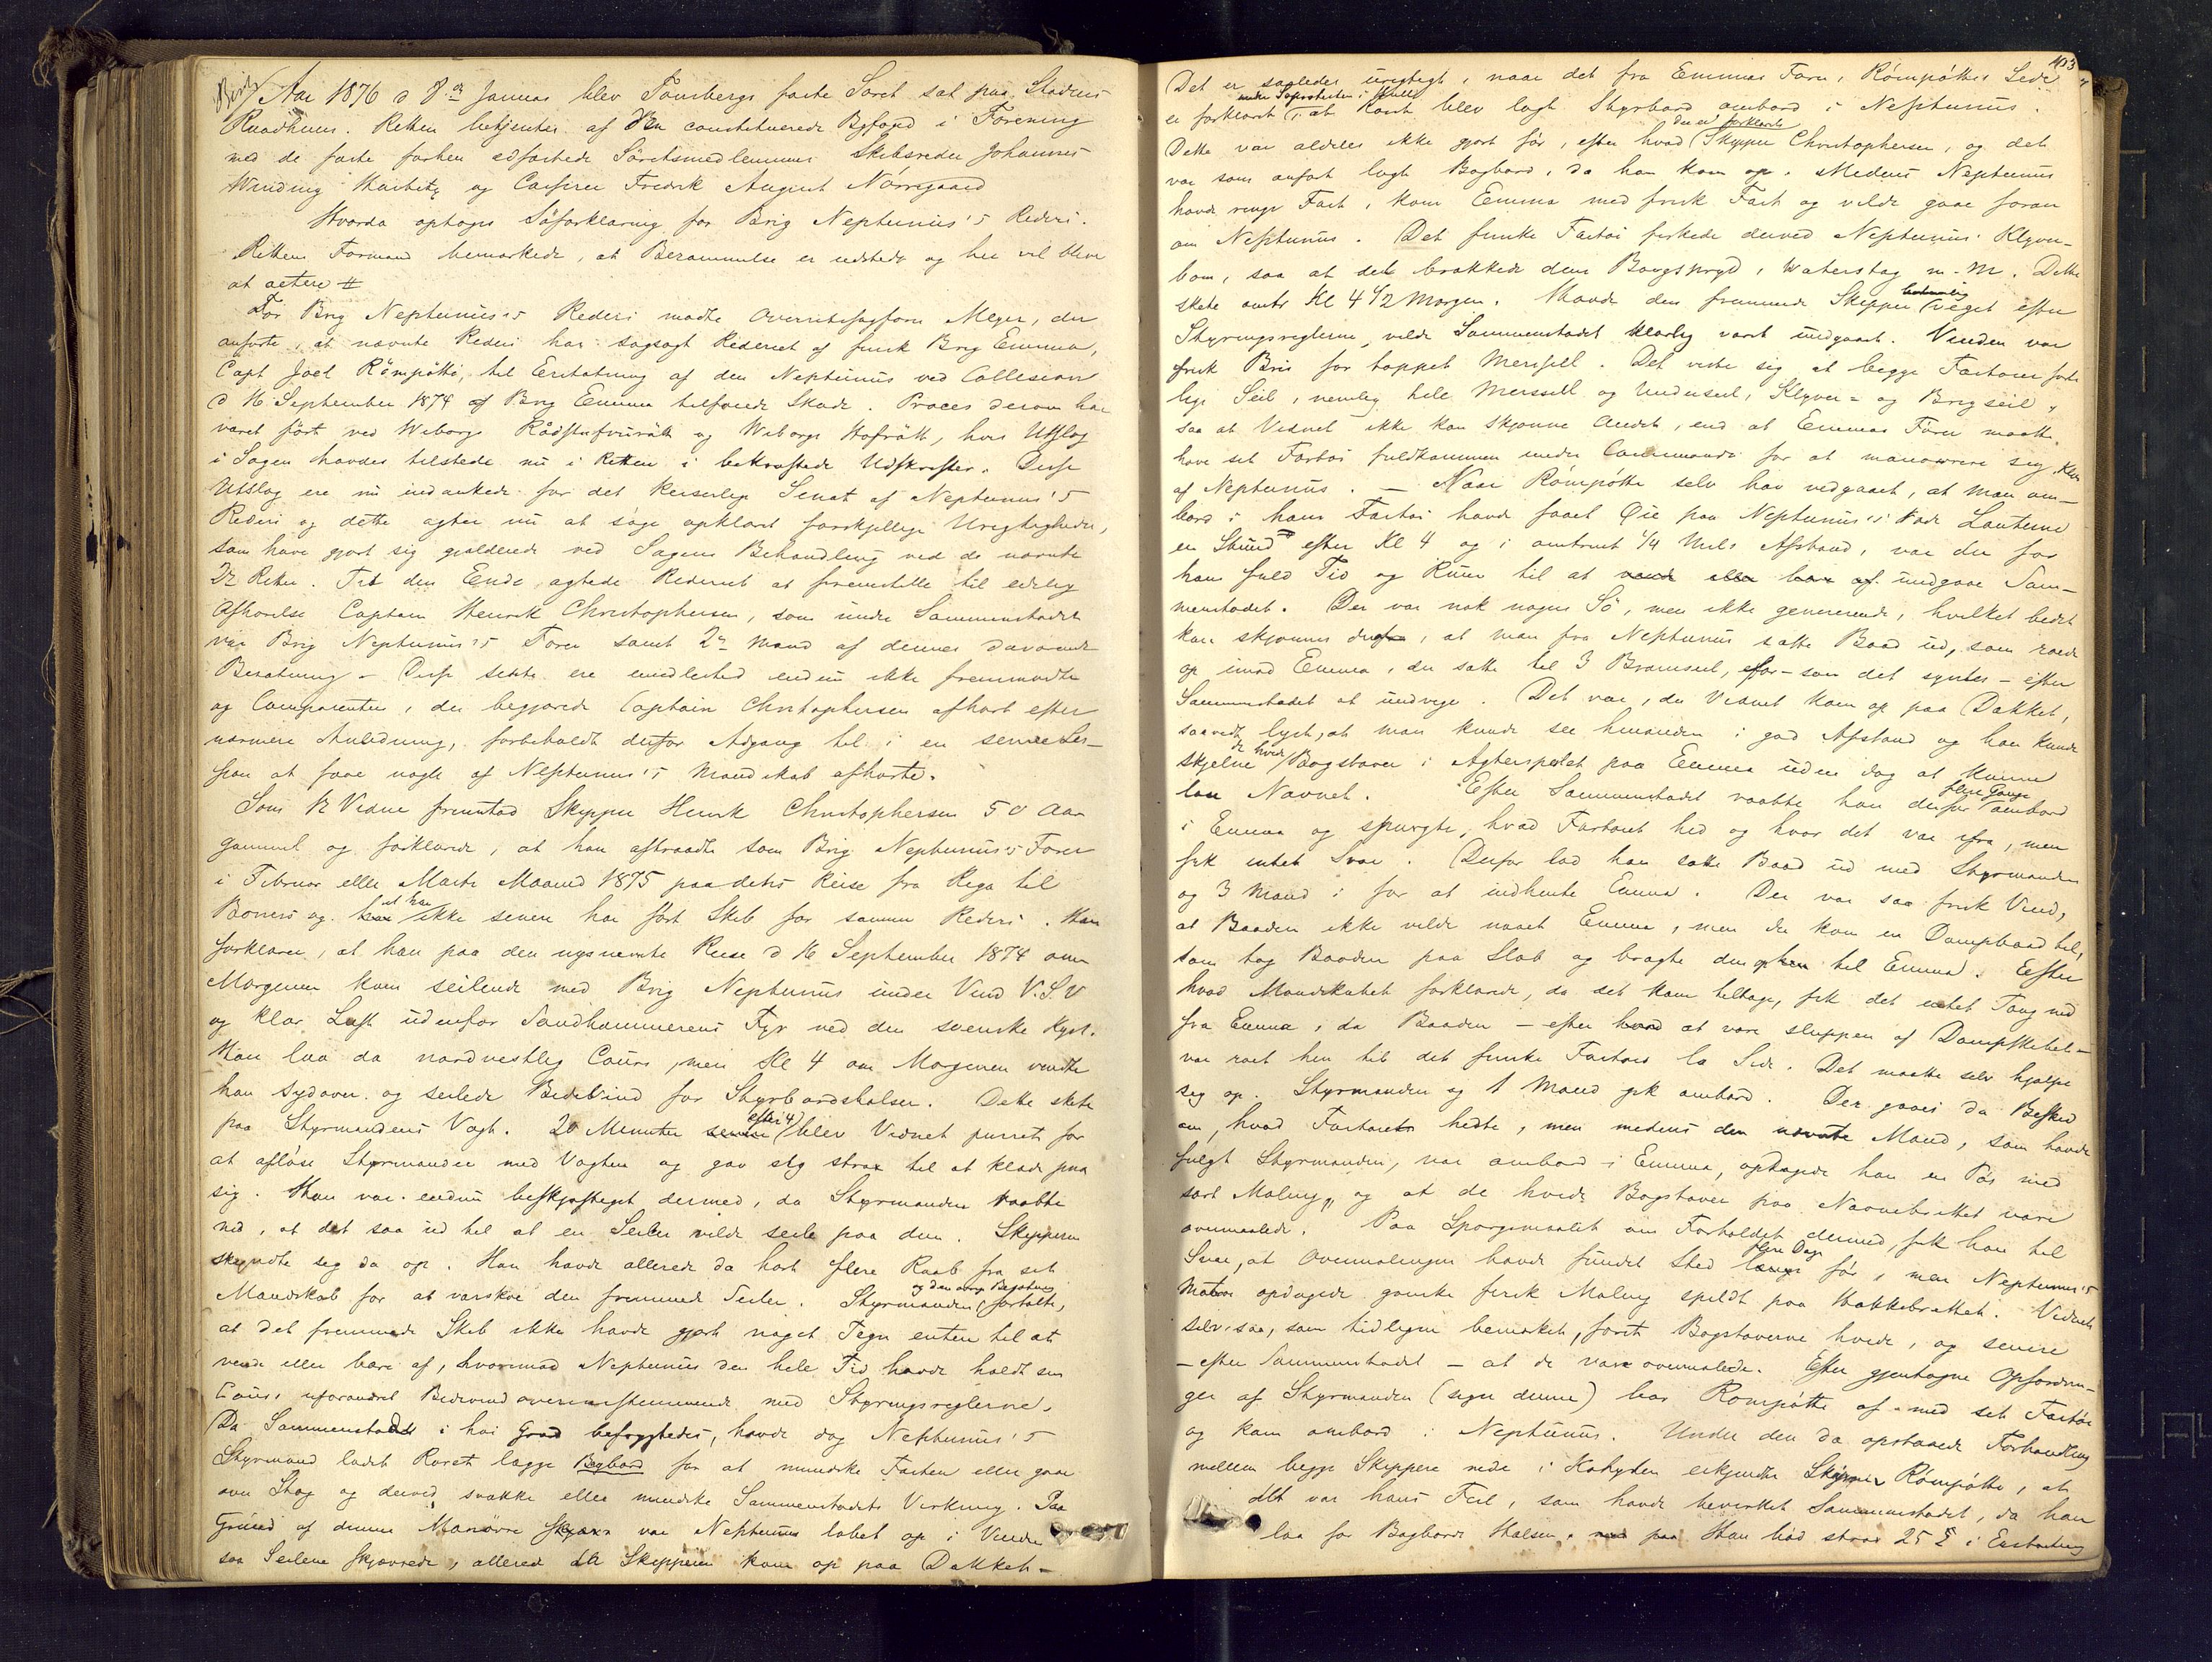 Aar 1876 d 8de Januar blev Tønsbergs faste Søret sat paa Stadens
Raadhuus. Retten betjentes af den constituerede Byfoged i Forening
med de faste forhen edfæstede Søretsmedlemmer Skibsreder Johannes
Winding og Casserer Fredrik August Nørregaard
Hvorda optoges Søforklaring for Brig Neptunus's Rederi.
Rettens Formand bemærkede, at Berammelse er udstedt og her vil blive
at actere #
For Brig Neptunus's Rederi mødte Overretssagfører Meyer, der
anførte, at nævnte Rederi har sagsøgt Rederiet af finsk Brig Emma,
Capt Joel Römpötti, til Erstatning af den Neptunus ved Collesion
d 16 September 1874 af Brig Emma tilføiede Skade. Proces derom har
været ført ved Wiborgs Rådstufvurätt og Wiborgs Hofrätt, hvis Utslag
i Sagen havdes tilstede nu i Retten i bekræftede Udskrifter. Disse
Utslag ere nu indankede for det Keiserlige Senat af Neptunus's
Rederi og dette agter nu at søge opklaret forskjellige Urigtigheder,
som have gjort sig gjældende ved Sagens Behandling ved de nævnte
2de Retter. Til den Ende agtede Rederiet at fremstille til edelig
Afhørelse Captain Henrik Christophersen, som under Sammenstødet
var Brig Neptunus's Fører samt 2de Mand af dennes daværende
Besætning – Disse sidste ere imidlertid endnu ikke fremmødte
og Comparenten, der begjærede Captain Christophersen afhørt efter
nærmere Anledning, forbeholdt derfor Adgang til i en senere Ses-
sion at faae nogle af Neptunus's Mandskab afhørte.
Som 1ste Vidne fremstod Skipper Henrik Christophersen 50 Aar
gammel og forklarede, at han aftraadte som Brig Neptunus's Fører
i Februar eller Marts Maaned 1875 paa dets Reise fra Riga til
og at han ikke senere har ført Skib for samme Rederi. Han
forklarer, at han paa den nysnævnte Reise d 16 September 1874 om
Morgenen kom seilende med Brig Neptunus under Vind V.S.V
og klar Luft udenfor Sandhammerens Fyr ved den svenske Kyst.
Man laa da nordvestlig Cours, men Kl 4 om Morgenen vendte
han sydover og seilede Bidevind for Styrbordshalser. Dette skete
paa Styrmandens Vagt. 20 Minutter senere efter 4 blev Vidnet purret for
at afløse Styrmanden med Vagten og gav sig strax til at klæde paa
sig. Han var endnu beskjæftiget dermed, da Styrmanden raabte
ned, at det saa ud til at en Seiler vilde seile paa dem. Skipperen
skyndte sig da op. Han havde allerede da hørt flere Raab fra sit
Mandskab for at varskoe den fremmede Seiler. Styrmanden og den øvrige Besætning fortalte,
at det fremmede Skib ikke havde gjort noget Tegn enten til at
vende eller bære af, hvorimod Neptunus den hele Tid havde holdt sin
Cours uforandret Bidevind overensstemmende med Styringsreglerne.
Da Sammenstødet i høi Grad befrygtedes, havde dog Neptunus's
Styrmand ladet Roret lægge Bagbord for at mindske Farten eller gaae
over Stag og derved svække eller mindske Sammenstødets Virkning. Paa
Grund af denne Manövre var Neptunus løbet op i Vinden
saa Seilene skjævrede, allerede da Skipperen kom op paa Dækket –
403
Det er saaledes urigtigt, naar det fra Emmas Fører, Römpöttis Side
er forklaret under Søprotesten i Hull, at Roret blev lagt Styrbord ombord i Neptunus.
Dette var aldeles ikke gjort før, efter hvad der er forklaret Skipper Christophersen, og det
var som anført lagt Bagbord, da han kom op. Medens Neptunus
havde ringe Fart, kom Emma med frisk Fart og vilde gaae foran
om Neptunus. Det finske Fartøi fiskede derved Neptunus Klyver-
bom, saa at det brækkede dens Bougspryd, Waterstag m. M. Dette
skete omtr Kl 4 1/2 Morgen. Havde den fremmede Skipper veget efter
Styringsreglerne, vilde Sammenstødet klarlig været undgaaet. Vinden var
frisk Bris for toppet Mersseil. Det viste sig at begge Fartøier førte
lige Seil, nemlig hele Mersseil og Underseil, Klyver- og Brigseil,
saa at Vidnet ikke kan skjønne Andet, end at Emmas Fører maatte
have sit Fartøi fuldkommen under Commando for at manøvrere sig klar
af Neptunus. – Naar Römpötti selv har vedgaaet, at man om-
bord i hans Fartøi havde faaet Øie paa Neptunus's røde Lanterne
en Stund efter Kl 4 og i omtrent 1/4 Miils Afstand, var der for
ham fuld Tid og Rum til at vende eller bære af undgaae Sam-
menstødet. Der var nok nogen Sø, men ikke generende, hvilket bedst
kan skjønnes deraf, at man fra Neptunus satte Baad ud, som roede
op imod Emma, der satte til 3 Bramseil, for – som det syntes – efter
Sammenstødet at undvige. Det var, da Vidnet kom op paa Dækket,
saavidt lyst, at man kunde see hinanden i god Afstand og han kunde
skjelne de hvide Bogstaver i Agterspeilet paa Emma uden dog at kunne
læse Navnet. Efter Sammenstødet raabte han derfor flere Gange ombord
i Emma og spurgte, hvad Fartøiet hed og hvor det var ifra, men
fik intet Svar. Derfor lod han sætte Baad ud med Styrmanden
og 3 Mand i for at indhente Emma. Der var saa frisk Vind,
at Baaden ikke vilde naaet Emma, men der kom en Dampbaad til,
som tog Baaden paa Slæb og bragte den hen til Emma. Efter
hvad Mandskabet forklarede, da det kom tilbage, fik det intet Toug ned
fra Emma, da Baaden – efter hvad at være sluppen af Dampskibet –
var roet hen til det finske Fartøis læ Side. Det maatte selv hjælpe
sig op. Styrmanden og 1 Mand gik ombord. Der gaves da Besked
om, hvad Fartøiet hedte, men medens den nævnte Mand, som havde
fulgt Styrmanden, var ombord i Emma, opdagede han en Pøs med
sort Maling og at de hvide Bogstaver paa Navnebrættet vare
overmalede. Paa Spørgsmaalet om Forholdet dermed, fik han til
Svar, at Overmalingen havde fundet Sted flere Dage før, men Neptunus's
Matros opdagede ganske fersk Maling spildt paa Hakkebrættet. Vidnet
selv saa, som tidligere bemærket, først Bogstaverne hvide, og senere
– efter Sammenstødet – at de vare overmalede. Efter gjentagne Opfordrin-
ger af Styrmanden (siger denne) bar Römpötti af med sit Fartøi
og kom ombord i Neptunus. Under den da opstaaede Forhandling
mellem begge Skippere nede i Kahytten erkjendte Skipper Römpötti, at
det var hans Feil, som havde bevirket Sammenstødet, da han
laa for Bagbords Halser. Han bød strax 25 £ i Erstatning